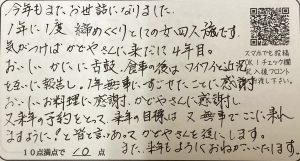 今年もまたお世話になりました。
1年に1度 締めくくりとしての女四人旅です。
気がつけばかどやさんに来だして4年目。
おいしいかにに舌鼓、食事の後はワイワイと近況
を互いに報告し、1年無事にすごせたことに感謝
おいしいお料理に感謝、かどやさんに感謝し
又来年の予約をとって、来年の目標は 又 無事でここに来れ
ますように、と皆で言いあって かどやさんを後にします。
10点満点で 10 点
また、来年もよろしくおねがいいたします
スマホでも投稿
OK!チェック欄
記入後フロント
お渡し下さい。